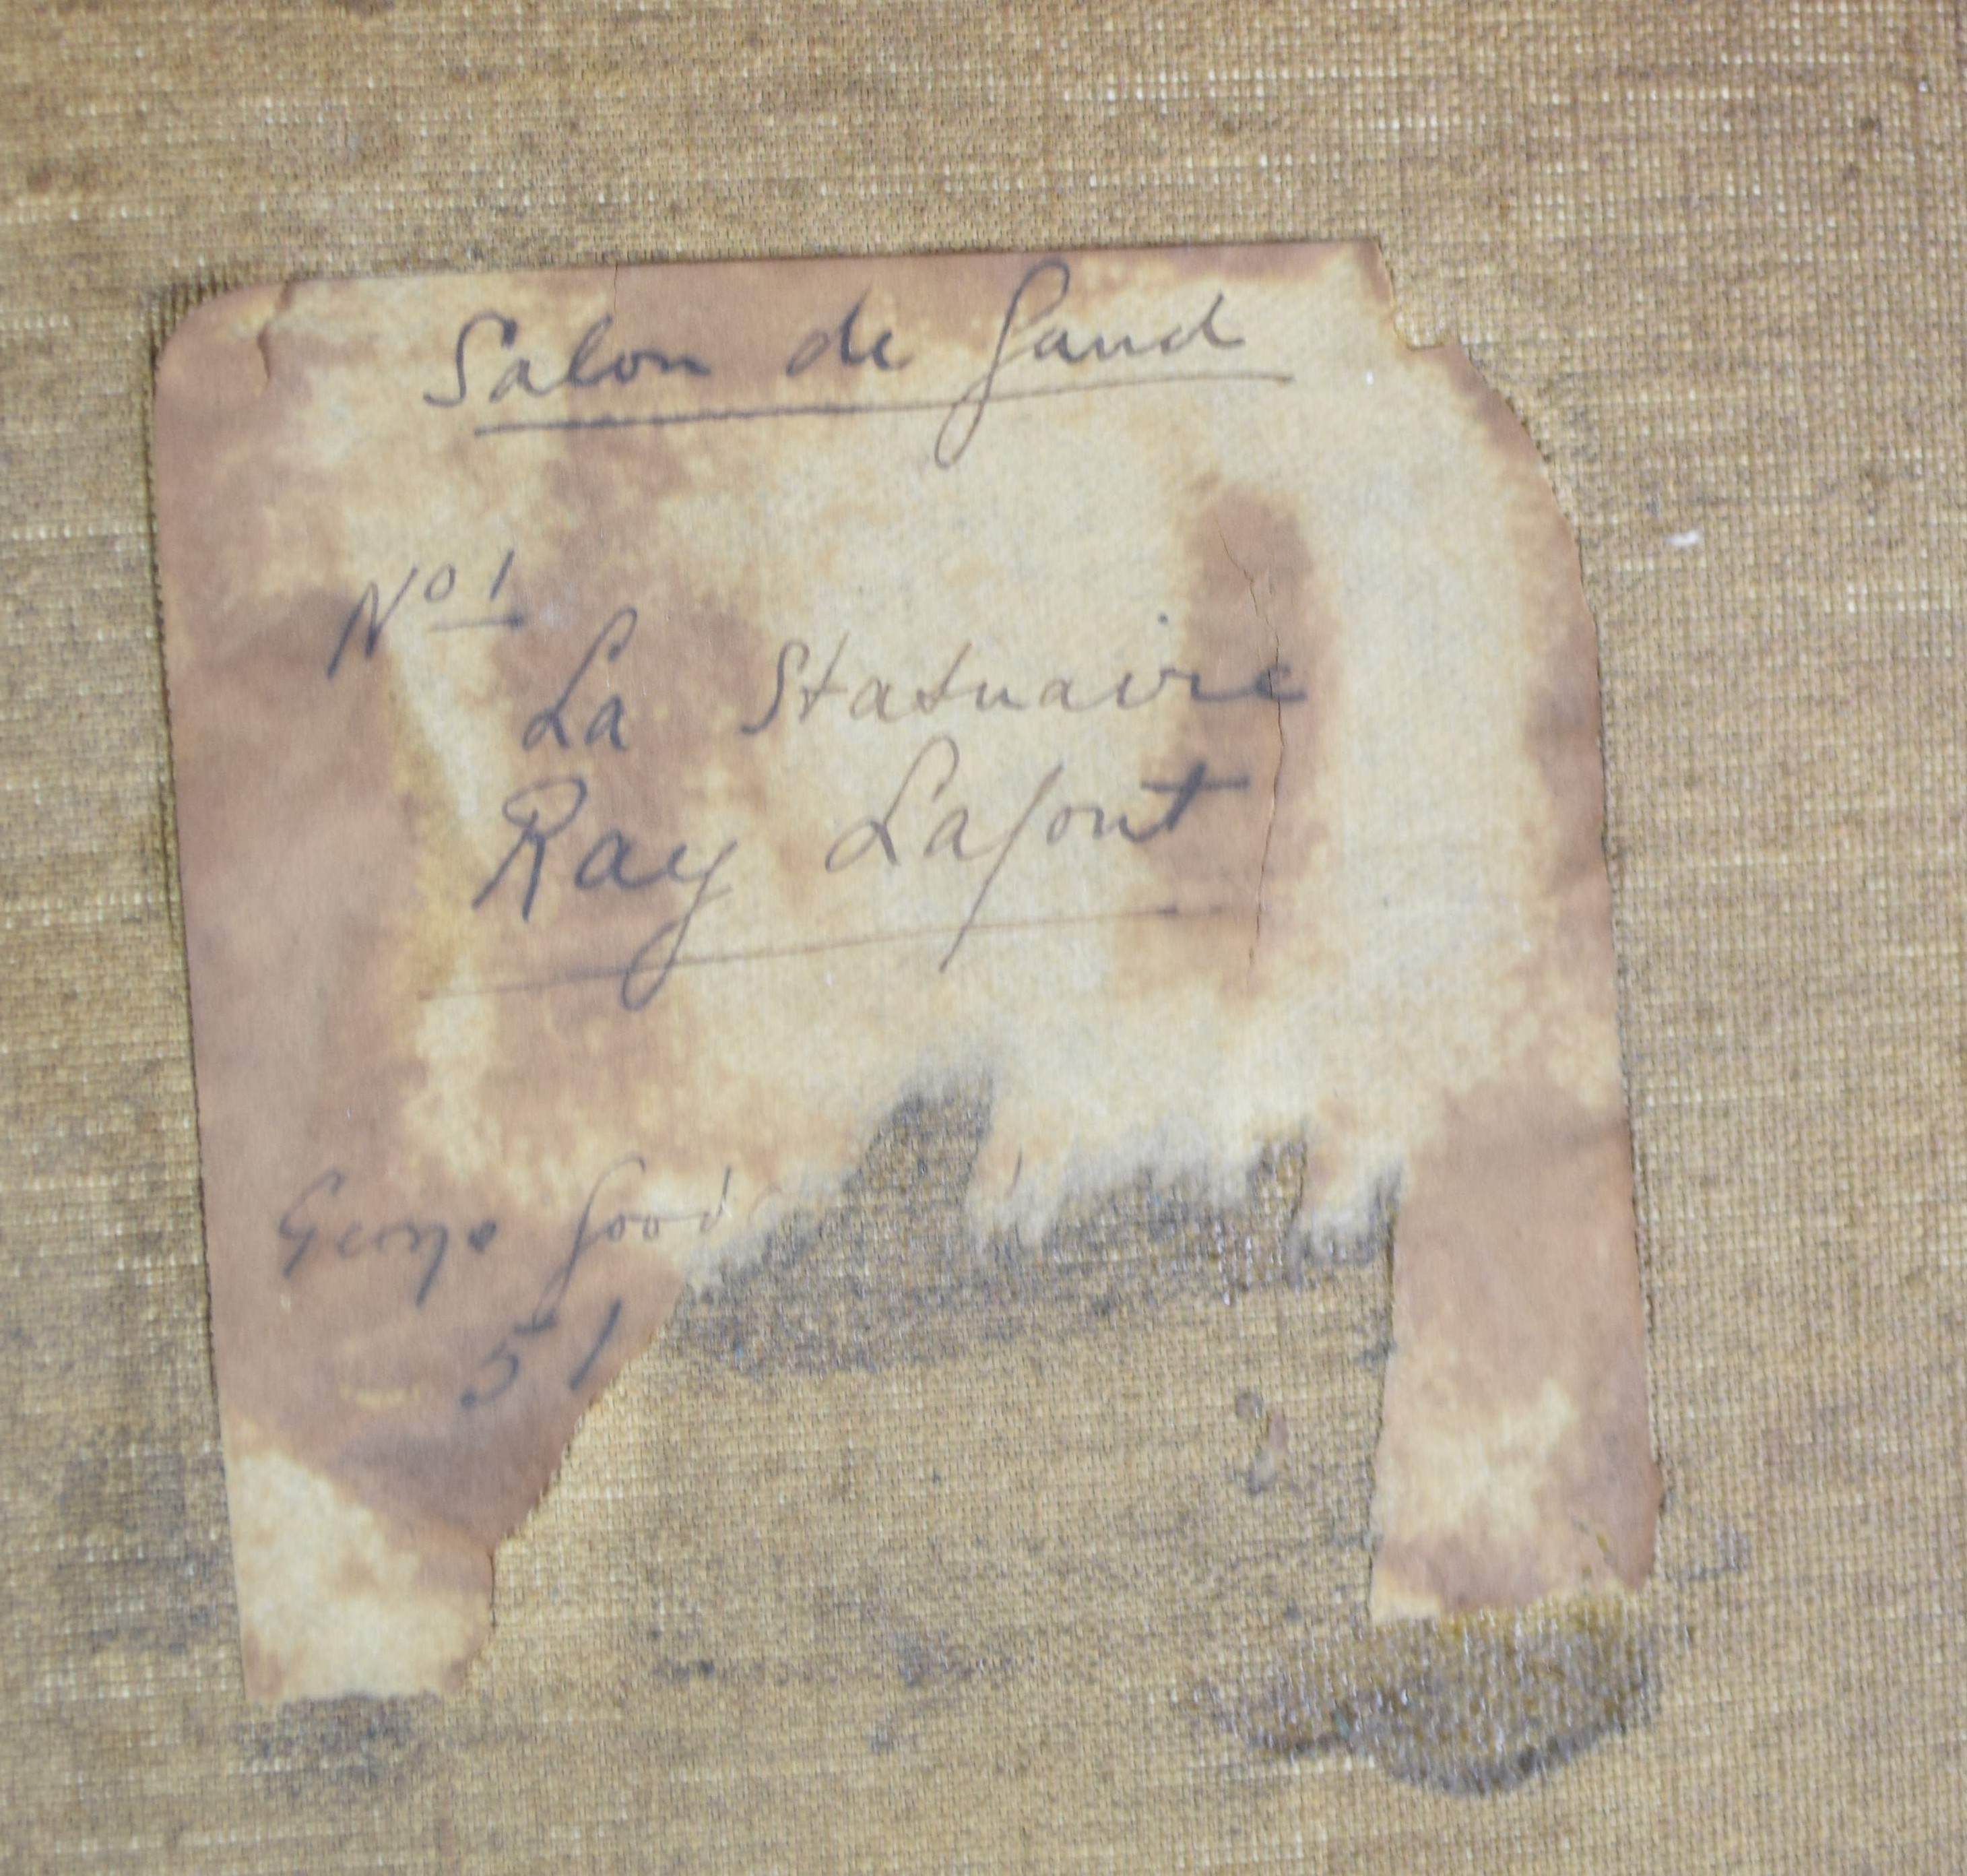 Salon de Gand
No 1
La Statuaire
Ray Lafont
George Good
51